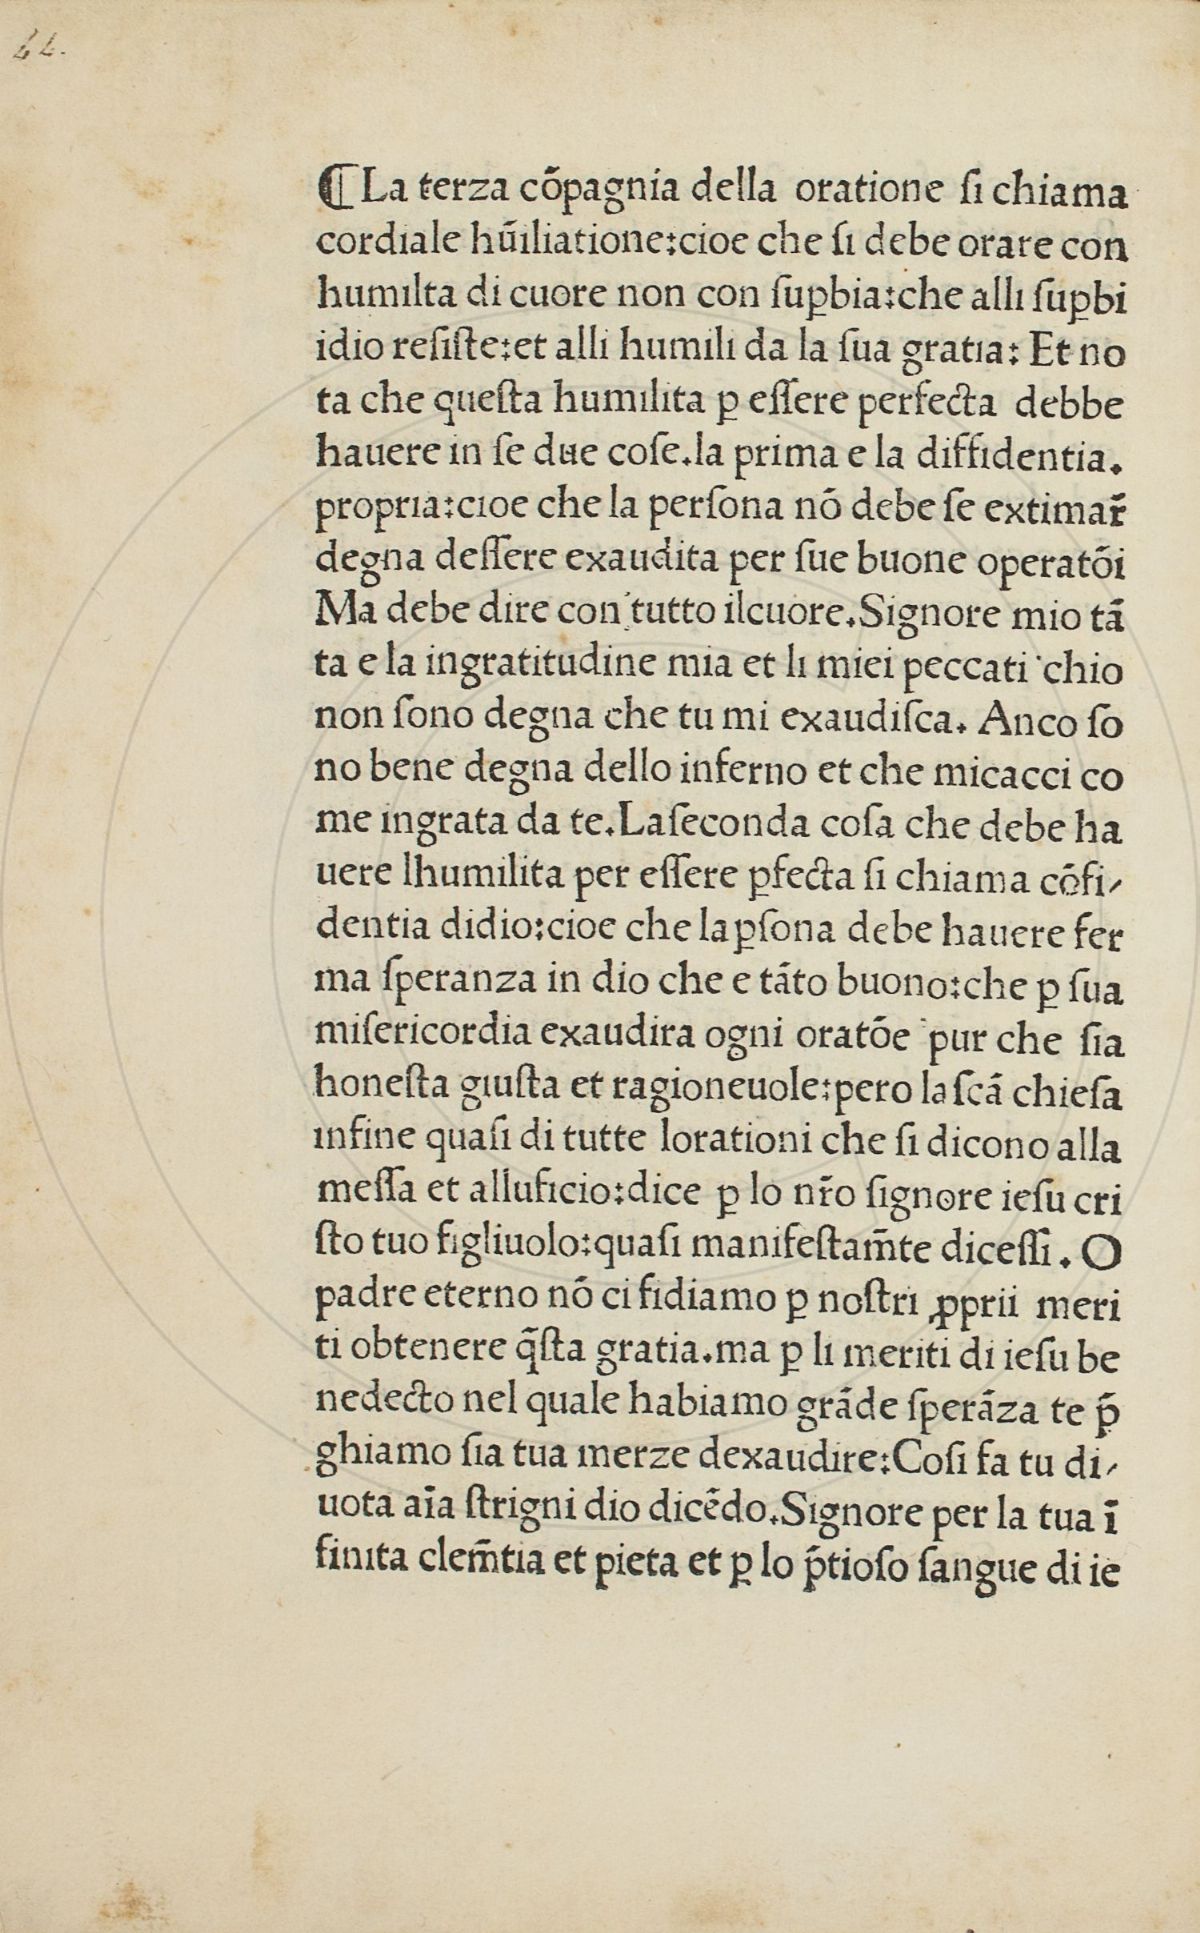 44.
¶ La terza cōpagnia della oratione ſi chiama
cordiale hūiliatione:cioe che ſi debe orare con
humilta di cuore non con ſuꝑbia:che alli ſuꝑbi
idio reſiſte:et alli humili da la ſua gratia: Et no
ta che queſta humilita ꝑ eſſere perfecta debbe
hauere in ſe due coſe.la prima e la diffidentia.
propria:cioe che la perſona nō debe ſe extimar̄
degna deſſere exaudita per ſue buone operatōi
Ma debe dire con tutto ilcuore.Signore mio tā
ta e la ingratitudine mia et li miei peccati chio
non ſono degna che tu mi exaudiſca. Anco ſo
no bene degna dello inferno et che micacci co
me ingrata da te.Laſeconda coſa che debe ha
uere lhumilita per eſſere ꝑfecta ſi chiama cōfi⸗
dentia didio:cioe che laꝑſona debe hauere fer
ma ſperanza in dio che e tāto buono:che ꝑ ſua
miſericordia exaudira ogni oratōe pur che ſia
honeſta giuſta et ragioneuole:pero la ſcā chieſa
infine quaſi di tutte lorationi che ſi dicono alla
meſſa et alluficio:dice ꝑ lo nr̄o ſignore ieſu cri
ſto tuo figliuolo:quaſi manifeſtam̄te diceſſi. O
padre eterno nō ci fidiamo ꝑ noſtri ꝓprii meri
ti obtenere q̄ſta gratia.ma ꝑ li meriti di ieſu be
nedecto nel quale habiamo grāde ſperāza te p̄
ghiamo ſia tua merze dexaudire:Coſi fa tu di⸗
uota aīa ſtrigni dio dicēdo.Signore per la tua ī
finita clem̄tia et pieta et ꝑ lo p̄tioſo ſangue di ie